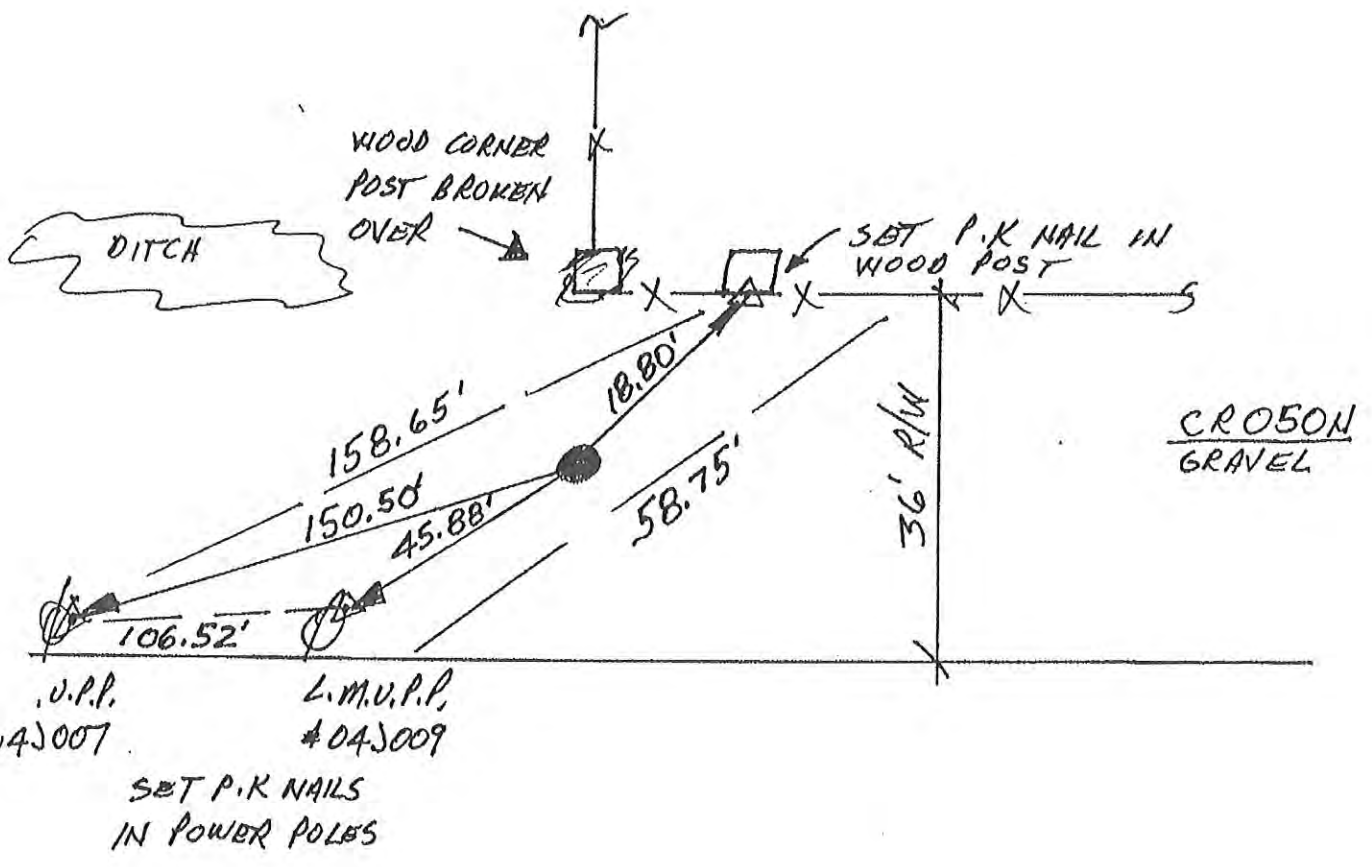 WOOD CORNER
POST BROKEN
OVER
DITCH
SET P.K NAIL IN
WOOD POST
18.80'
158.65'
150.50'
45.88'
58.75'
36' R/W
CR050N
GRAVEL
106.52'
.U.P.P.
L.M.U.P.P.
#04J009
4J007
SET P.K NAILS
IN POWER POLES